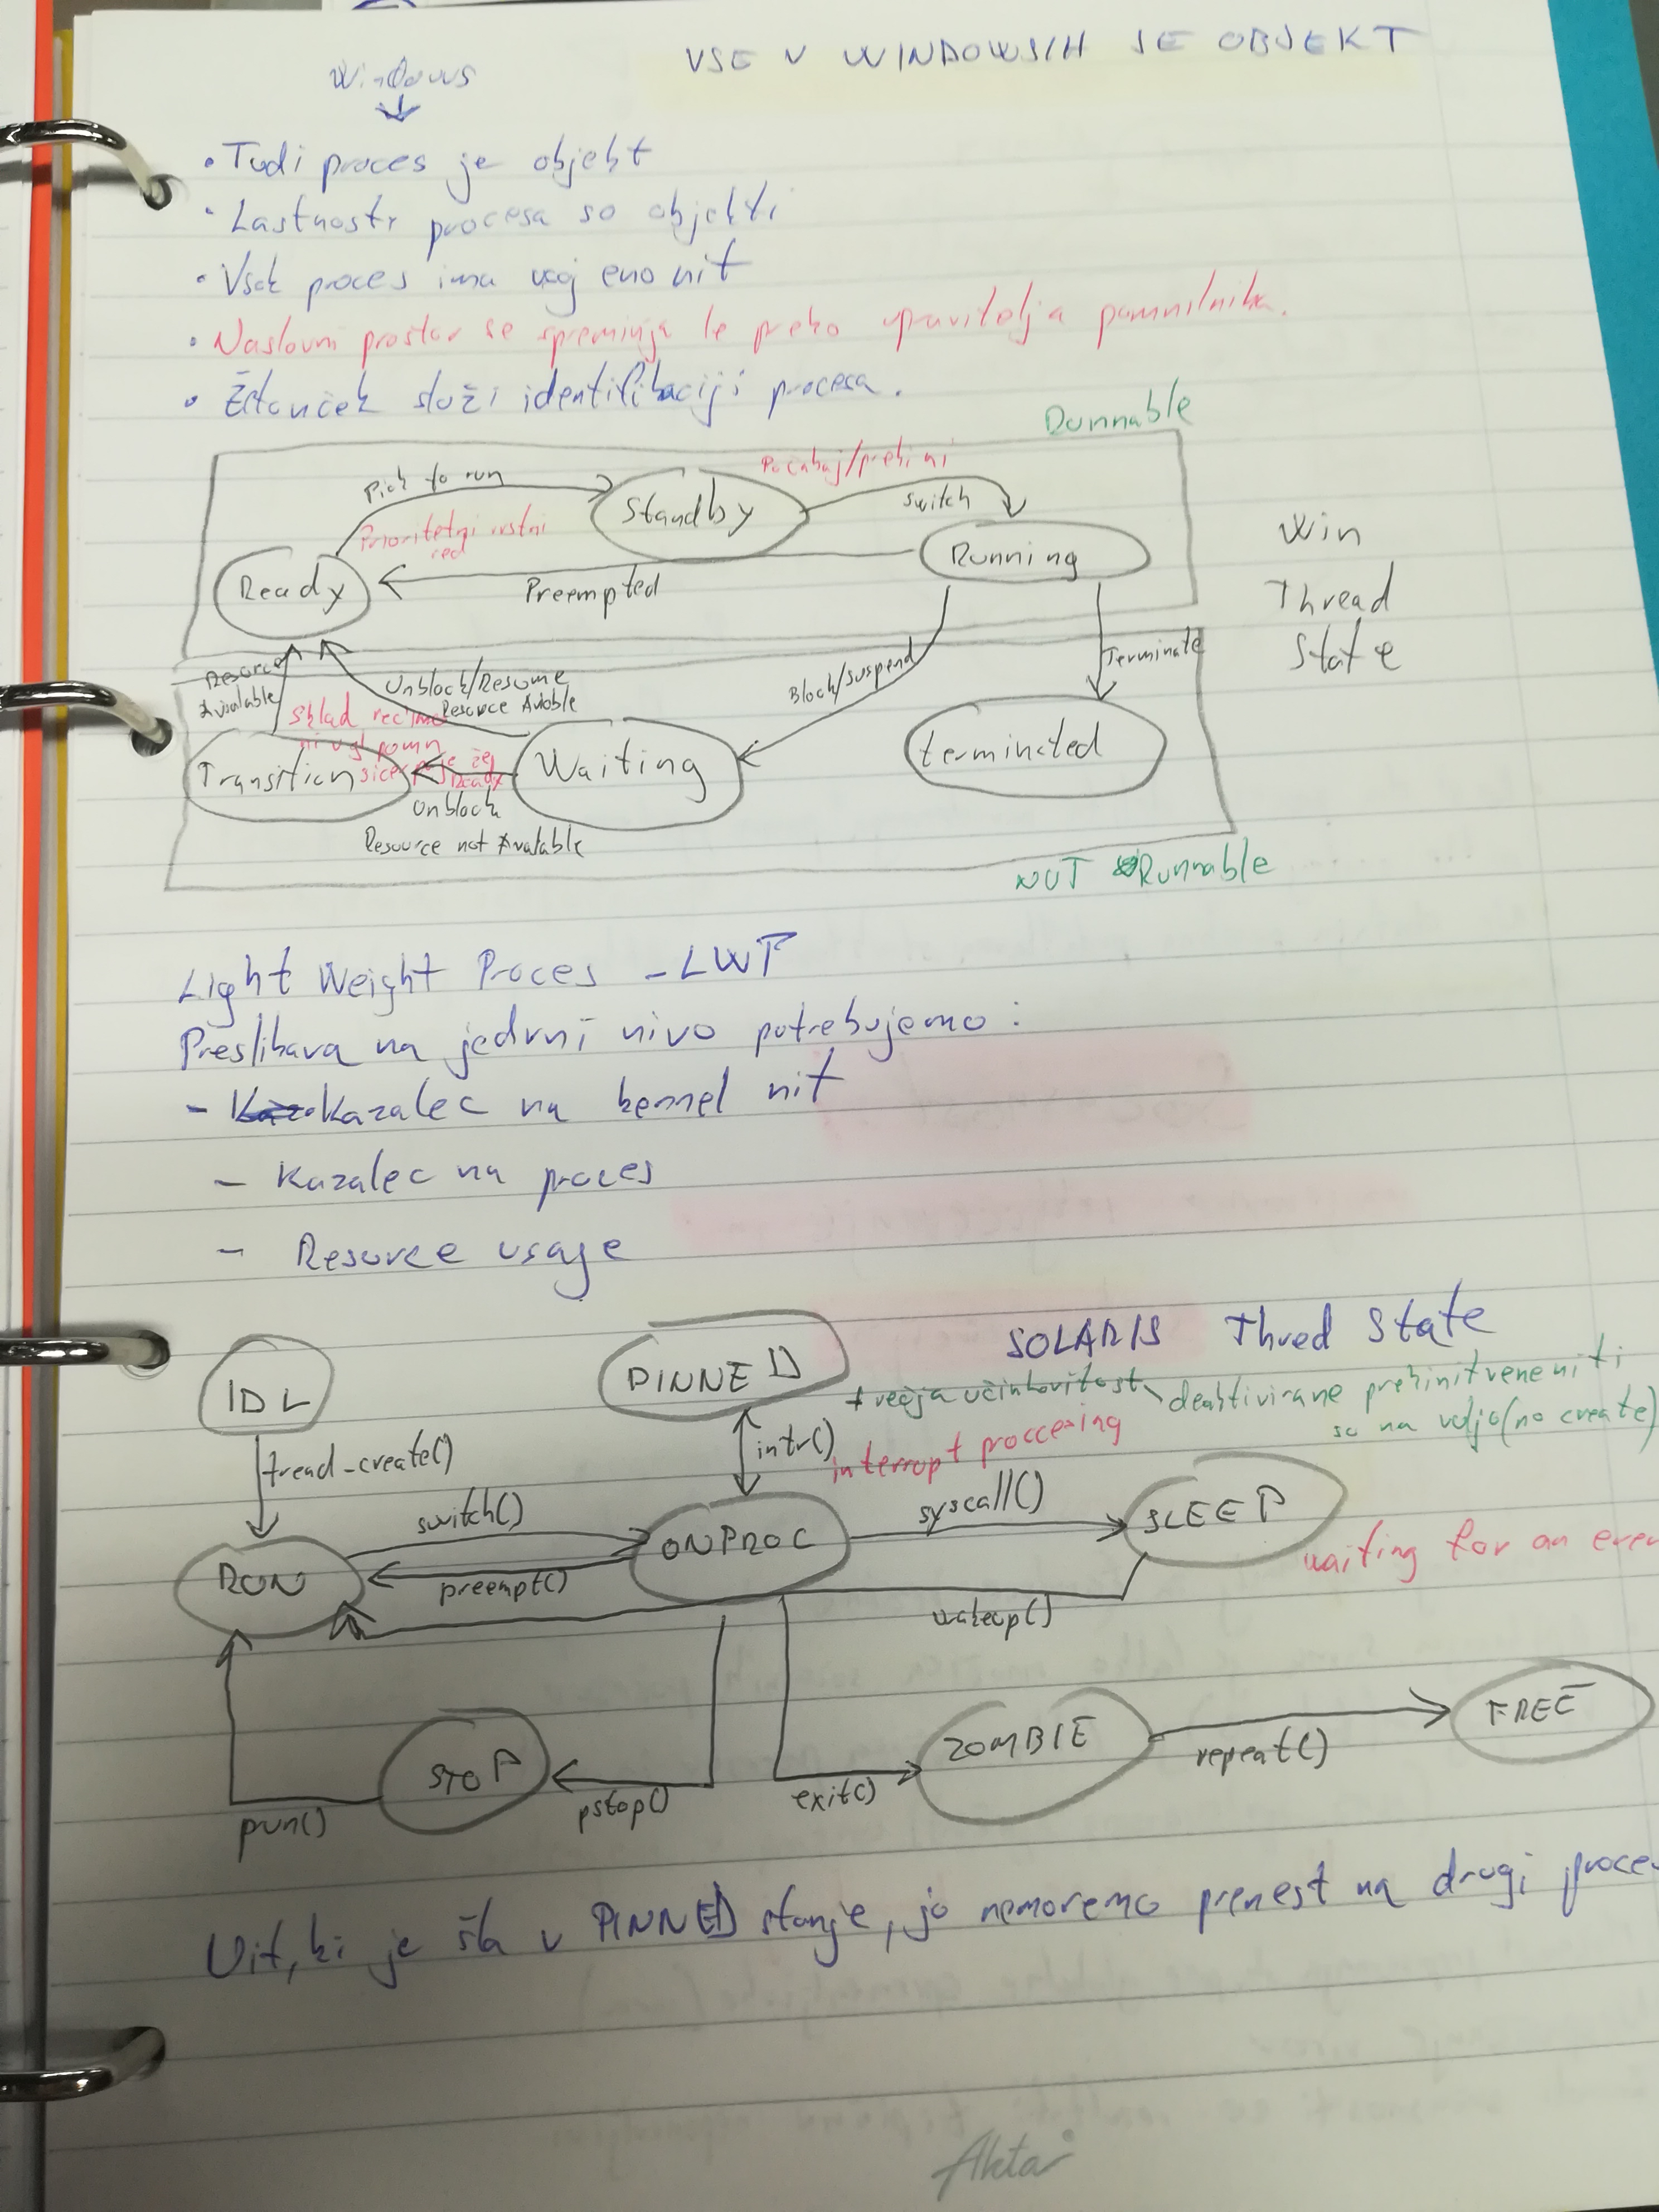 VSE V WINDOWSIH JE OBJEKT
Windows
• Tudi proces je objekt
• Lastnosti procesa so objekti
• Vsak proces ima vsaj eno nit
• Naslovni prostor se spreminja le preko upravitelja pomnilnika.
• Žetonček služi identifikaciji procesa.
Runnable
Pick to run
Standby
Počakaj/prekini
Switch
Prioritetni vrstni
red
Running
Ready
Preempted
Win
Thread
State
Resorce
Avialable
Unblock/Resume
Resorce Avioble
Block/Suspend
Terminate
Sklad
pomn
sicer že
Ready
Transition
Waiting
terminated
Unblock
Resource not Avalable
NOT Runnable
Light Weight Proces - LWP
Preslikava na jedrni nivo potrebujemo:
- Kazalec na kernel nit
- Kazalec na proces
- Resorce usage
SOLARIS Thred State
IDL
PINNED
+ večja učinkovitost deaktivirane prekinitvene niti
so na voljo (no create)
tread_create()
intr()
interrupt proccesing
switch()
syscall()
SLEEP
ONPROC
RUN
preempt()
waiting for an
wakeup()
STOP
ZOMBIE
FREE
prun()
pstop()
exit()
repeat()
Nit, ki je šla v PINNED stanje, jo nemoremo prenest na drugi
Akta